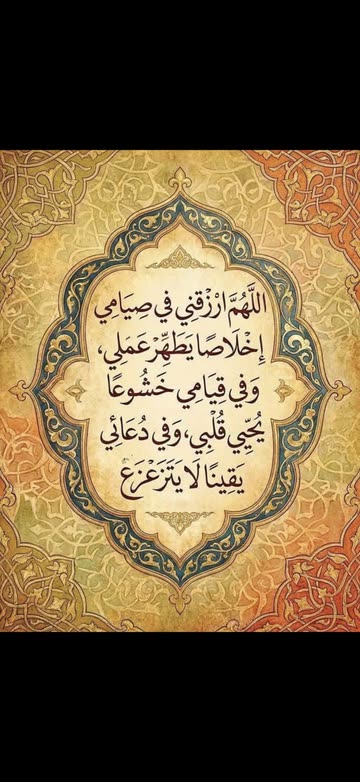 اللَّهُمَّ ارْزُقْنِي فِي صِيَامِي
إِخْلَاصًا يَطَهِّرْ عَمَلِي،
وَفِي قِيَامِي خَشُوعًا
يُحْيِي قُلْبِي، وَفِي دُعَائِي
يَقِينًا لَا يَتَزَعْزَعُ